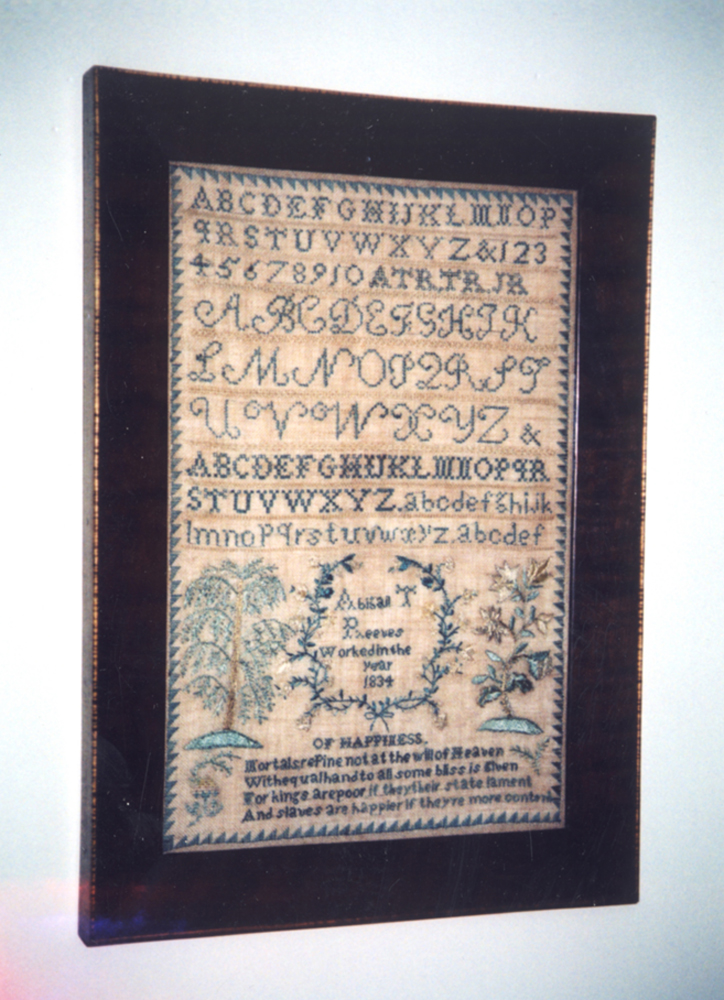 ABCDEFGHIJKLMNOP
QRSTUVWXYZ&123
45678910ATRTRJR
ABCDEFGHIK
LMNOPQRST
UVWXYZ&
ABCDEFGHIJKLMNOPQR
STUVWXYZ.abcdefghijk
lmnopqrstuvwxyz.abcdef
Abigail T
Reeves
Worked in the
year
1834
OF HAPPINESS.
Mortals repine not at the will of Heaven
With equal hand to all some bliss is Given
For kings are poor if they their state lament
And slaves are happier if theyre more content